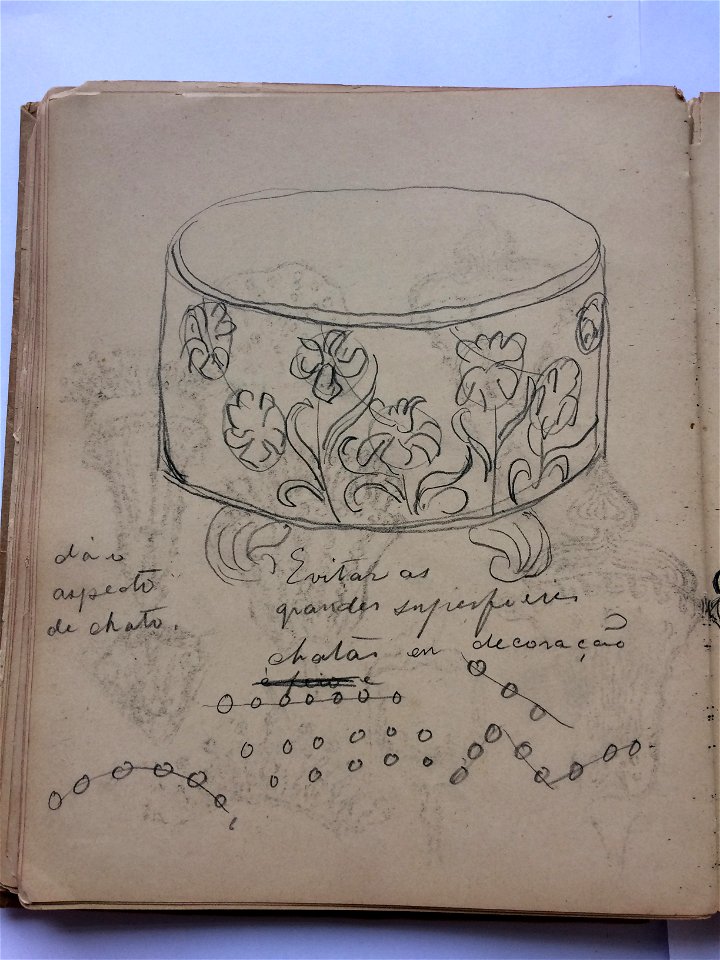 dá o
aspecto
de chato.
Evitar as
grandes superficies
chatas em decoração